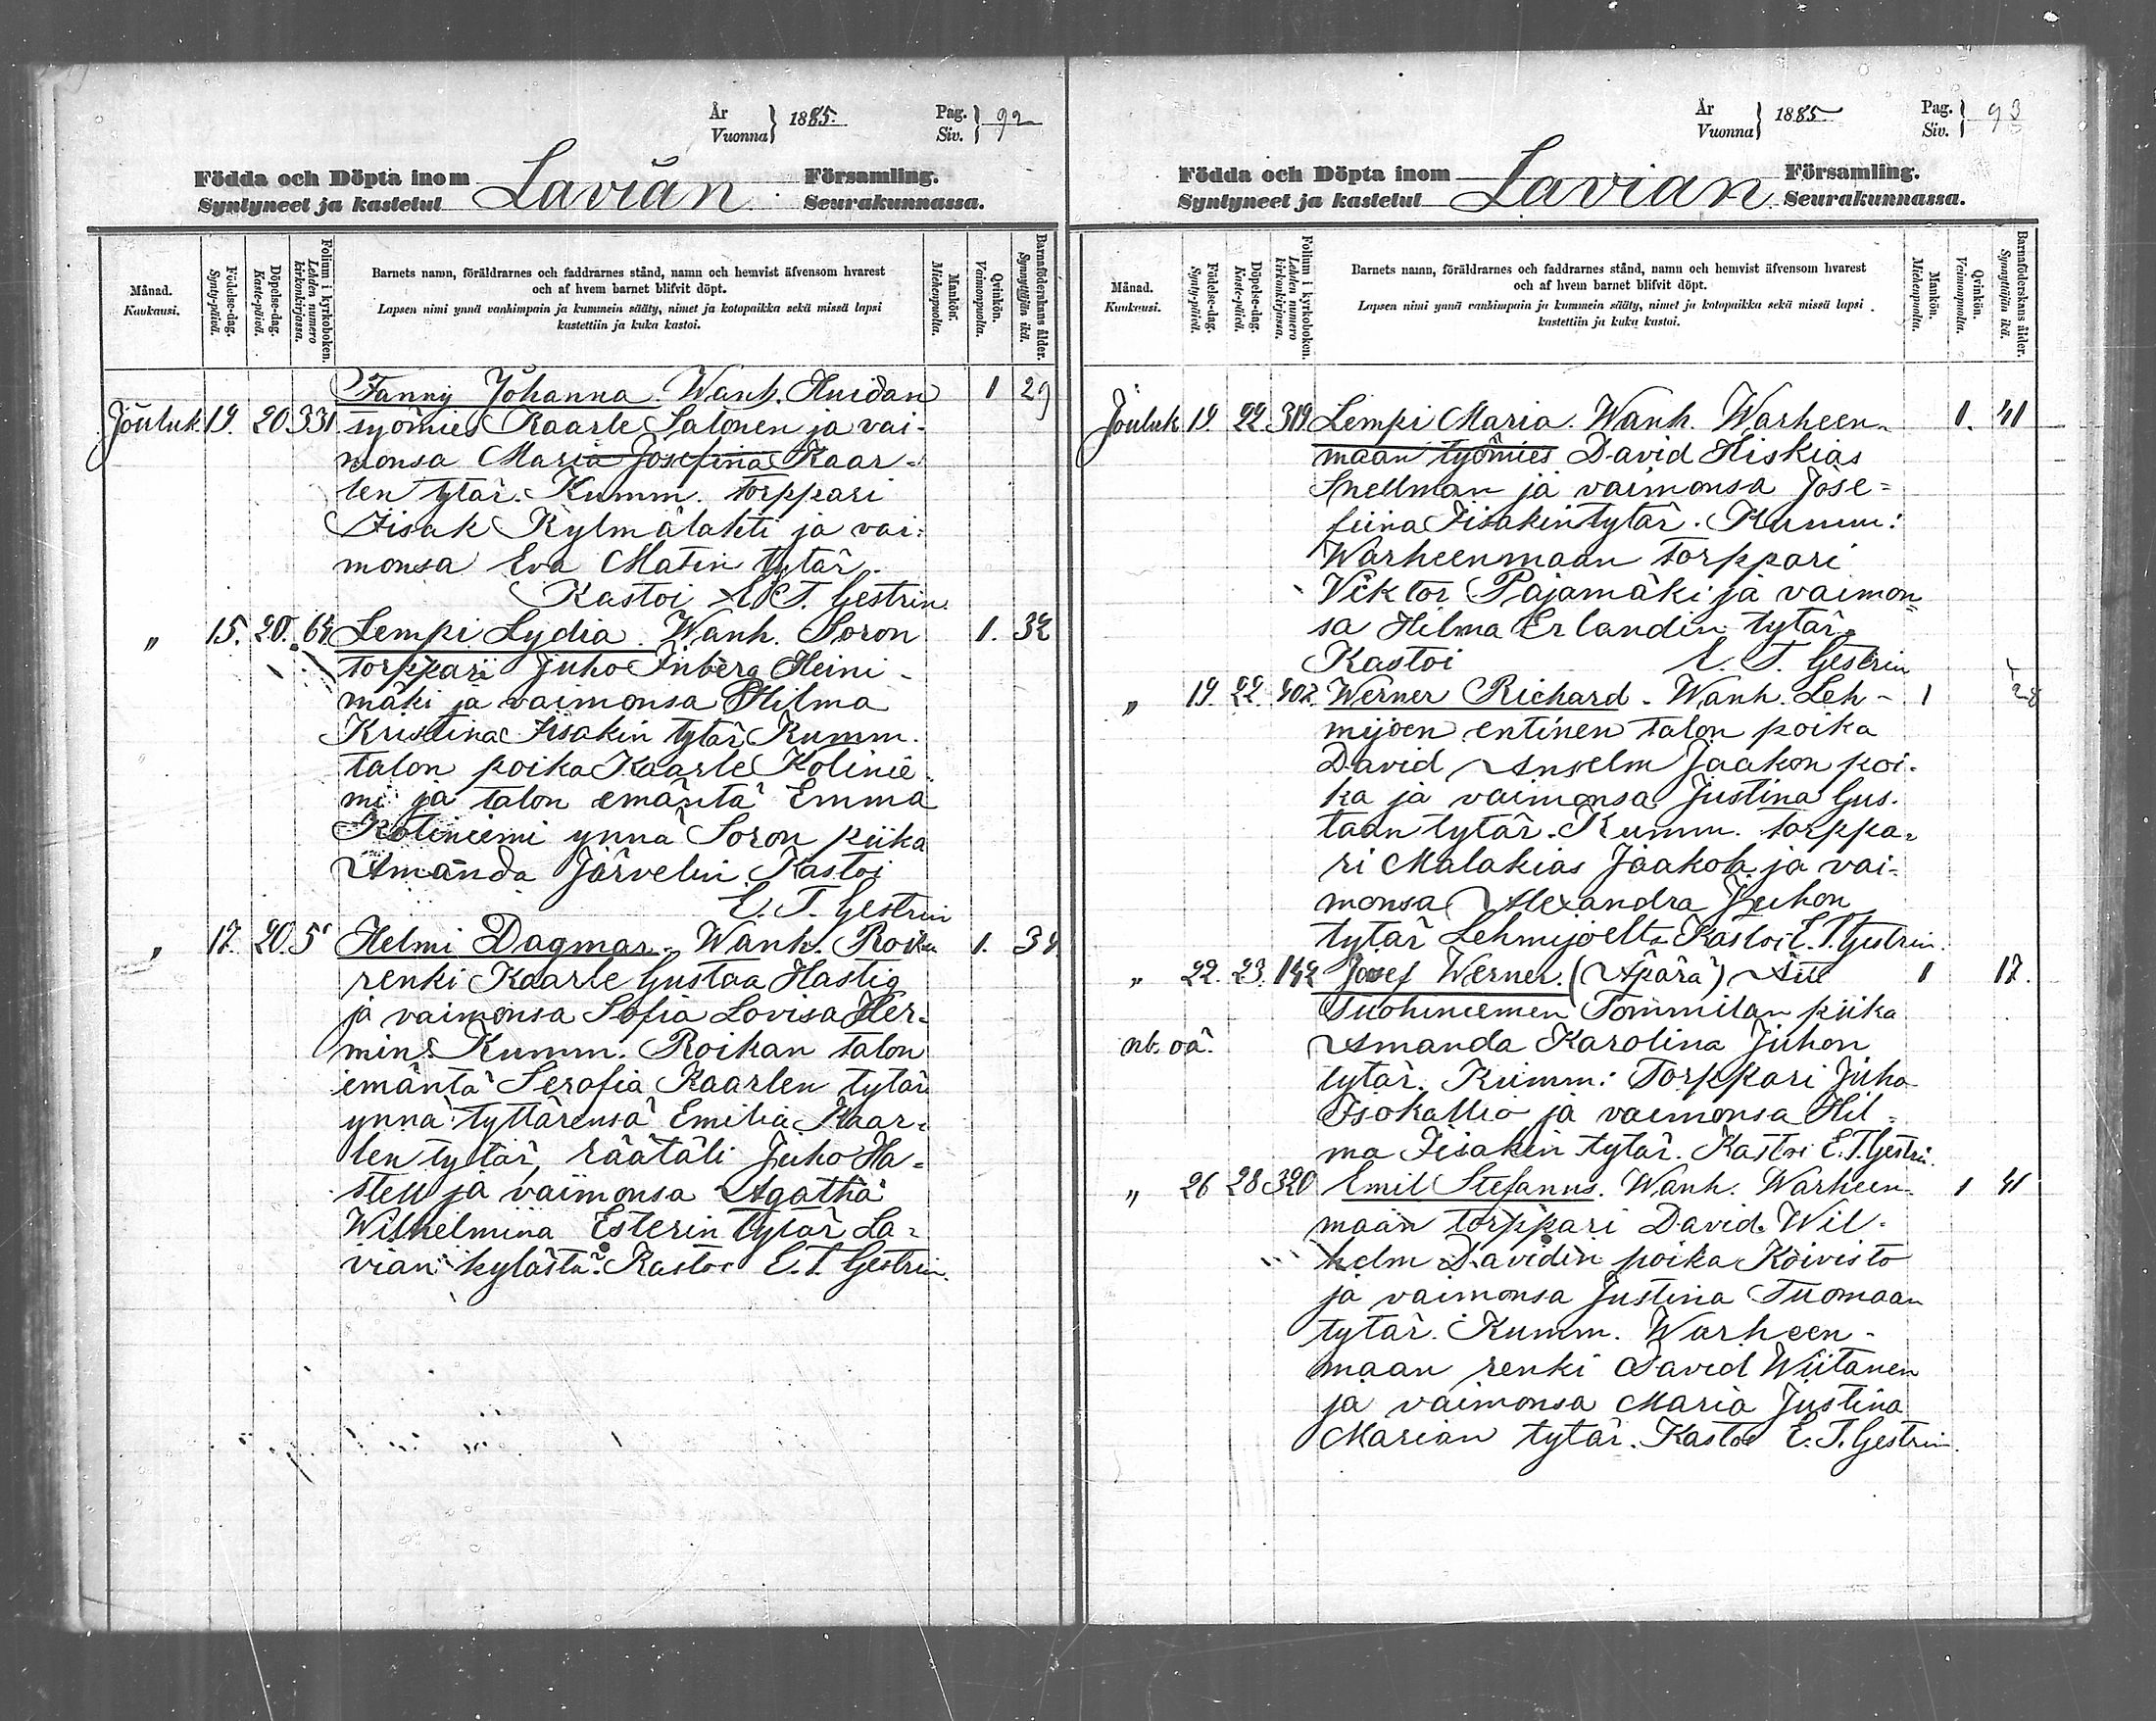 År
Vuonna } 1885. Pag.
Siv. } 92
Födda och Döpta inom Lavian Församling.
Syntyneet ja kastetut Seurakunnassa.
Månad.
Kuukausi.
Födelse-dag.
Synty-päivä.
Döpelse-dag.
Kaste-päivä.
Folium i kyrkoboken.
Lehden numero
kirkonkirjassa.
Barnets namn, föräldrarnes och faddrarnes stånd, namn och hemvist äfvensom hvarest
och af hvem barnet blifvit döpt.
Lapsen nimi ynnä vanhimpain ja kummein sääty, nimet ja kotopaikka sekä missä lapsi
kastettiin ja kuka kastoi.
Mankön.
Miehenpuolta.
Qvinkön.
Vaimonpuolta.
Barnaföderskans ålder.
Synnyttäjän ikä.
Fanny Johanna. Wanh. Huidan 1 29
Jouluk. 19. 20 331 työmies Kaarle Salonen ja vai-
monsa Maria Josefina Kaar-
len tytär. Kumm. torppari
Iisak Kylmälahti ja vai-
monsa Eva Matin tytär.
Kastoi E. T. Gestrin.
" 15. 20. 64 Lempi Lydia. Wanh. Soron 1. 32
torppari Juho Inberg Heini-
mäki ja vaimonsa Hilma
Kristina Iisakin tytär Kumm.
talon poika Kaarle Kolinie
mi ja talon emäntä Emma
Koliniemi ynnä Soron piika
Amanda Järvelin. Kastoi
E. T. Gestrin
" 17. 20. 5 Helmi Dagmar. Wanh. Roikan 1. 34
renki Kaarle Gustaa Hastig
ja vaimonsa Sofia Lovisa Her-
min. Kumm. Roikan talon
emäntä Serafia Kaarlen tytär
ynnä tyttärensä Emilia Kaar-
len tytär, räätäli Juho Ha-
stell ja vaimonsa Agatha
Wilhelmina Esterin tytär La-
vian kylästä. Kastoi E. T. Gestrin.
År
Vuonna } 1885 Pag.
Siv. } 93
Födda och Döpta inom Lavian Församling.
Syntyneet ja kastetut Seurakunnassa.
Månad.
Kuukausi.
Födelse-dag.
Synty-päivä.
Döpelse-dag.
Kaste-päivä.
Folium i kyrkoboken.
Lehden numero
kirkonkirjassa.
Barnets namn, föräldrarnes och faddrarnes stånd, namn och hemvist äfvensom hvarest
och af hvem barnet blifvit döpt.
Lapsen nimi ynnä vanhimpain ja kummein sääty, nimet ja kotopaikka sekä missä lapsi
kastettiin ja kuka kastoi.
Mankön.
Miehenpuolta.
Qvinkön.
Vaimonpuolta.
Barnaföderskans ålder.
Synnyttäjän ikä.
Jouluk 19. 22. 319 Lempi Maria. Wanh. Warheen- 1. 41
maan työmies David Hiskias
Snellman ja vaimonsa Jose=
fiina Iisakin tytär. Kumm:
Warheenmaan torppari
Viktor Pajamäki ja vaimon=
sa Hilma Erlandin tytär.
Kastoi E. T. Gestrin
" 19. 22. 402. Werner Richard. Wanh. Leh- 1 28
mijoen entinen talon poika
David Anselm Jaakon poi-
ka ja vaimonsa Justina Gus-
taan tytär. Kumm. torppa-
ri Malakias Jaakola ja vai-
monsa Alexandra Juhon
tytär Lehmijoelta Kastoi E. T. Gestrin.
" 22. 23. 142 Josef Werner. (Äpärä) Äiti 1 17.
Suohiniemen Tommilan piika
nb. oä. Amanda Karolina Juhon
tytär. Kumm: Torppari Juho
Isokallio ja vaimonsa Hil-
ma Iisakin tytär. Kastoi E. T. Gestrin.
" 26 28 320 Emil Stefanus. Wanh. Warheen- 1 41
maan torppari David Wil-
helm Davidin poika Koivisto
ja vaimonsa Justina Tuomaan
tytär. Kumm. Warheen-
maan renki David Wiitanen
ja vaimonsa Maria Justina
Marian tytär. Kastoi E. T. Gestrin.